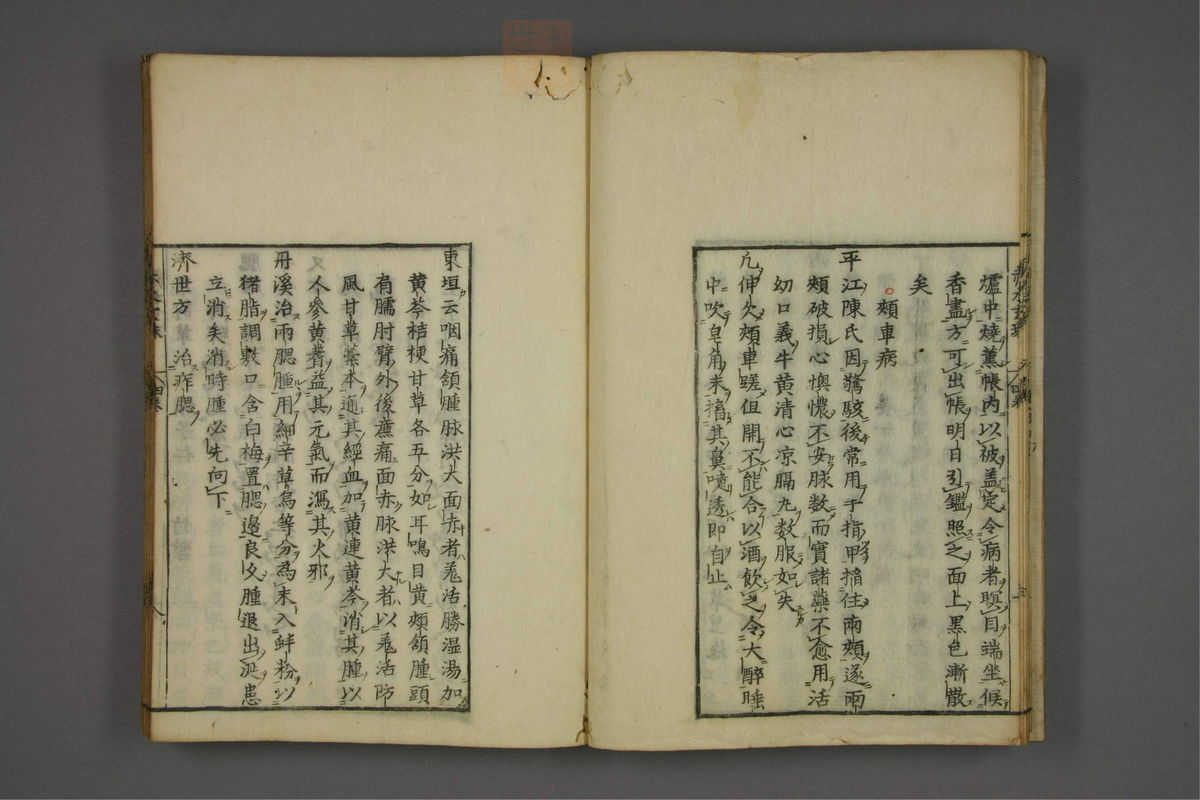 爐中燒薰帳内以被盖定令病者瞑目端坐候
香盡方可出帳明日引鑑照之面上黒色漸散
矣
頰車病
平江陳氏因驚駭後常用手指甲搯住兩頰遂兩
頰破損心懊憹不安脉数而實諸藥不愈用活
幼口義牛黄清心凉膈丸数服如失
凢伸欠頰車蹉但開不能合以酒飲之令大醉睡
中吹皂角末搐其鼻嚏透即自止
東垣云咽痛頷腫脉洪大面赤者羗活勝湿湯加
黄芩桔梗甘草各五分如耳鳴目黄頰頷腫頸
肩臑肘臂外後廉痛面赤脉洪大者以羗活防
風甘草藁本通其經血加黄連黄芩消其腫以
人參黄耆益其元氣而瀉其火邪
丹溪治兩腮腫用細辛草烏等分為末入蚌粉以
猪脂調敷口含白梅置腮邊良久腫退出涎患
立消矣消時腫必先向下
濟世方 治痄腮